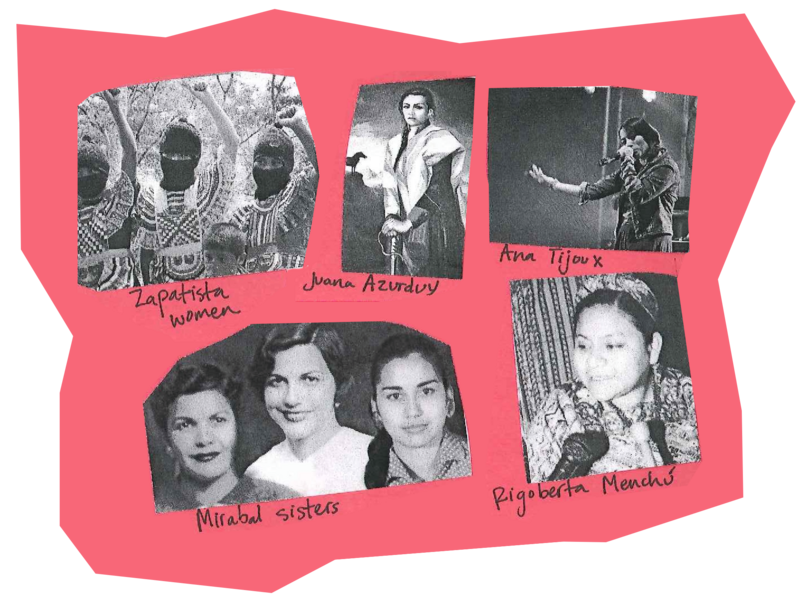 Zapatista
women
Juana Azurduy
Ana Tijoux
Mirabal sisters
Rigoberta Menchú